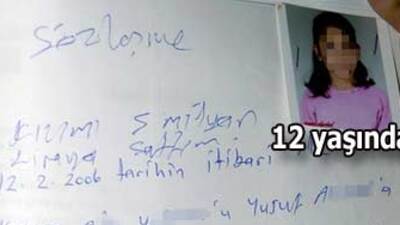 Sözleşme
Kızımı 5 milyar
Liraya sattım
12 yaşında
12.2.2006 tarihin itibari
Yusuf A